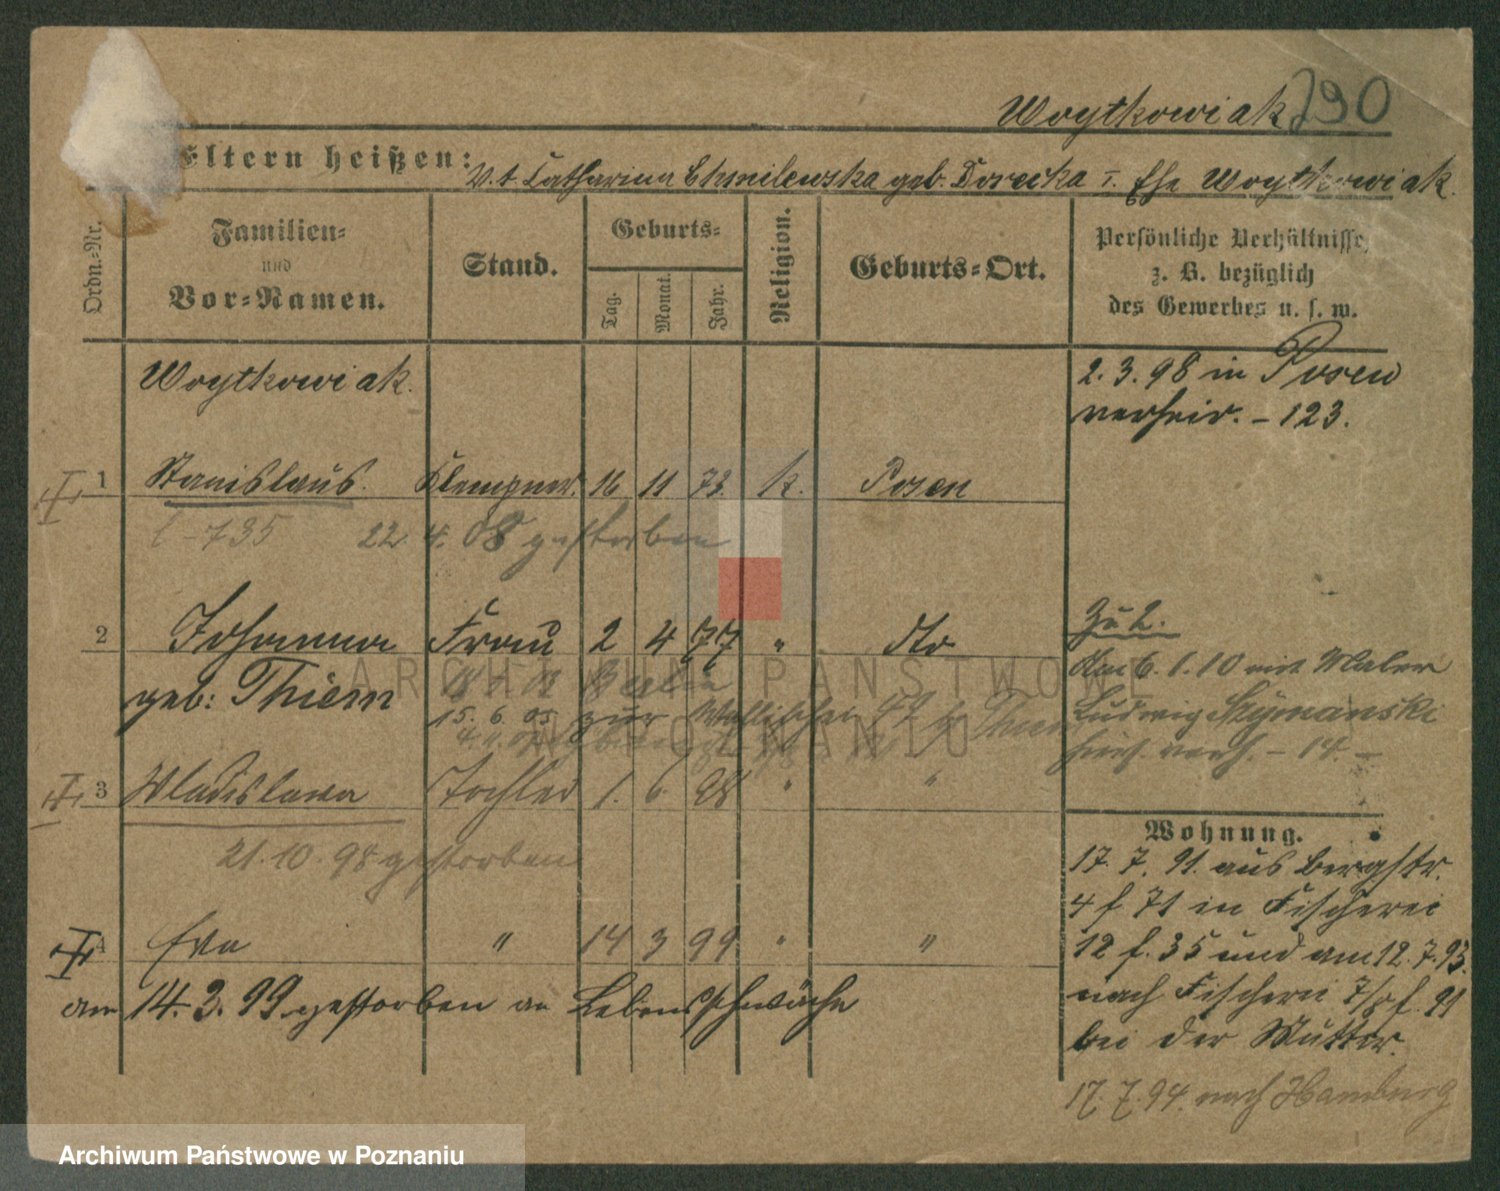 Woytkowiak 790
Eltern heißen: V. t. Catharina Chmilewska geb. Dorecka I. Ehe Woytkowiak.
Ordn.-Nr.
Familien-
und
Vor-Namen.
Stand.
Geburts-
Tag.
Monat.
Jahr.
Religion.
Geburts-Ort.
Persönliche Verhältnisse,
z. B. bezüglich
des Gewerbes u. s. w.
Woytkowiak.
2. 3. 98 in Posen
verheir. - 123.
1 Stanislaus. Klempner. 16 11 73. k. Posen
22. 4. 08 gestorben
2 Johanna Frau 2 4 77 " dto
geb: Thiem
Berlin
15. 6. 05 zur Wallischei
Zu 2.
Am 6. 1. 10 mit Maler
Ludwig Szymanski
hier verh. - 14. -
3 Wladislawa Tochter 1. 6. 98 " "
21. 10. 98 gestorben
4 Eva " 14 3 99 " "
am 14. 3. 99 gestorben an Lebensschwäche
Wohnung.
17. 7. 91. aus Bergstr.
4 f 71 in Fischerei
12 f. 35 und am 12. 7. 93.
nach Fischerei 7/8 f. 91
bei der Mutter.
17. 7. 94. nach Hamburg
ARCHIWUM PAŃSTWOWE
W POZNANIU
Archiwum Państwowe w Poznaniu